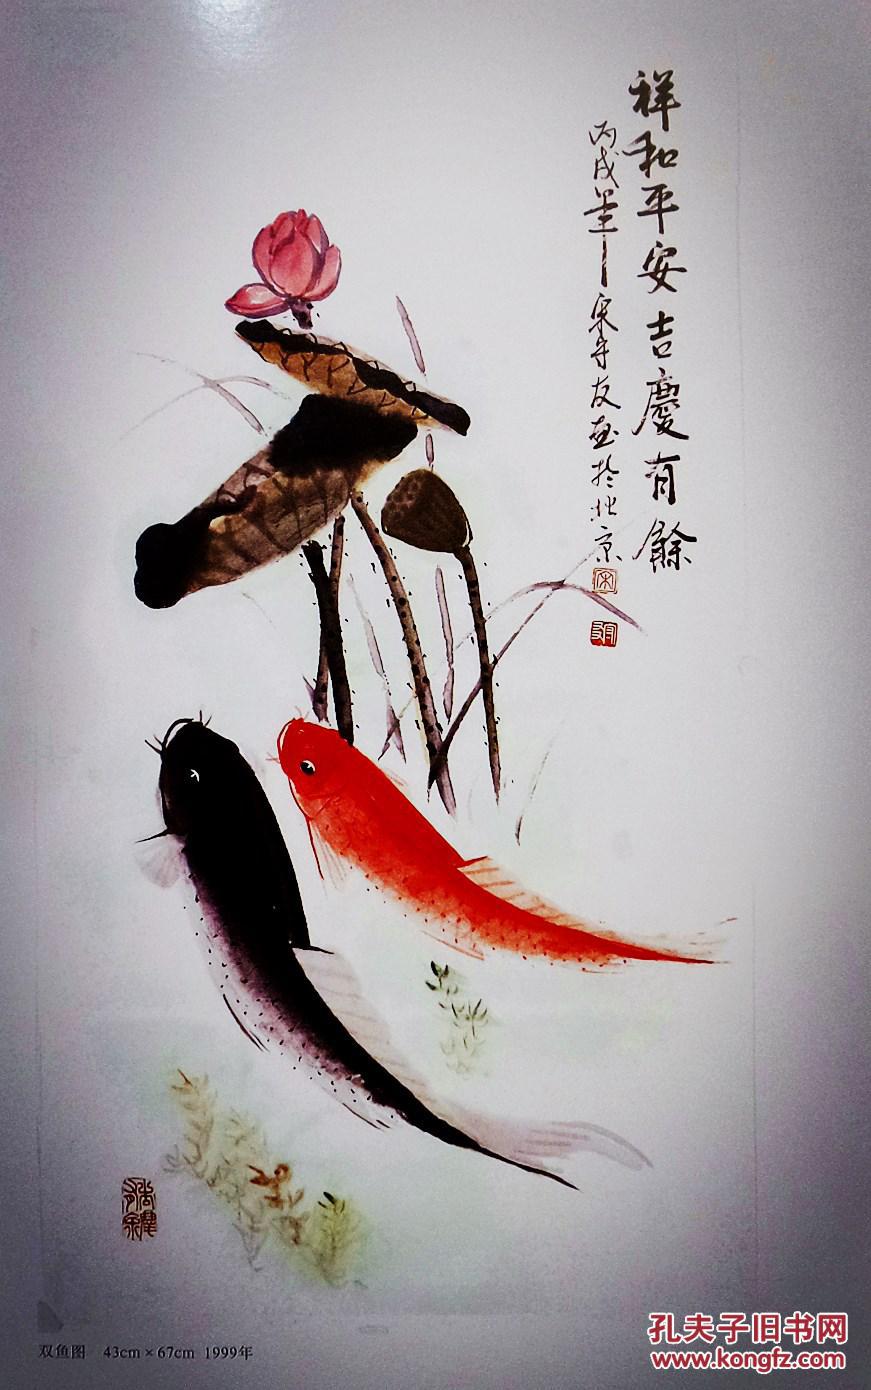 祥和平安吉慶有餘
丙戌
友画於北京
双鱼图 43cm×67cm 1999年
孔夫子旧书网
www.kongfz.com